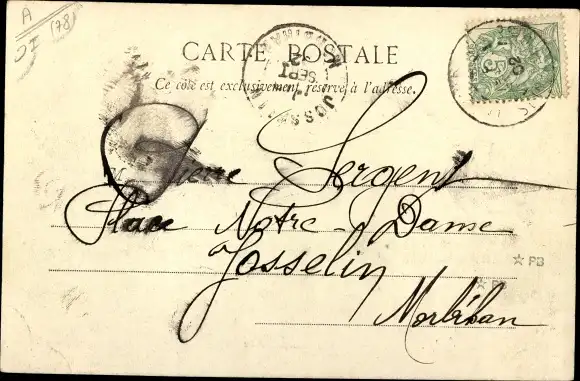 A (78)
CARTE POSTALE
Ce côté est exclusivement réservé à l'adresse.
JOSSELIN
SEPT
5
M Pierre Sergent
Place Notre-Dame
à Josselin
Morbihan
☆ PB